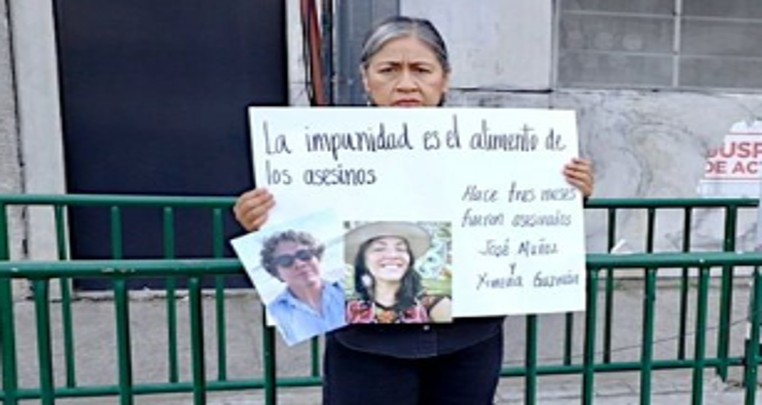 La impunidad es el alimento de
los asesinos
Hace tres meses
fueron asesinados
José Muñoz
y
Ximena Guzmán
DE ACT